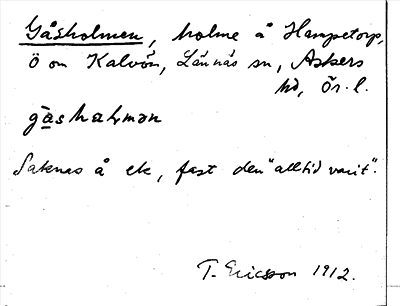 Gåsholmen, holme å Hampetorp,
ö om Kalvön, Lännäs sn, Askers
hd, Ör. l.
gåshalmən
Saknas å ek, fast den "alltid varit".
T. Ericsson 1912.